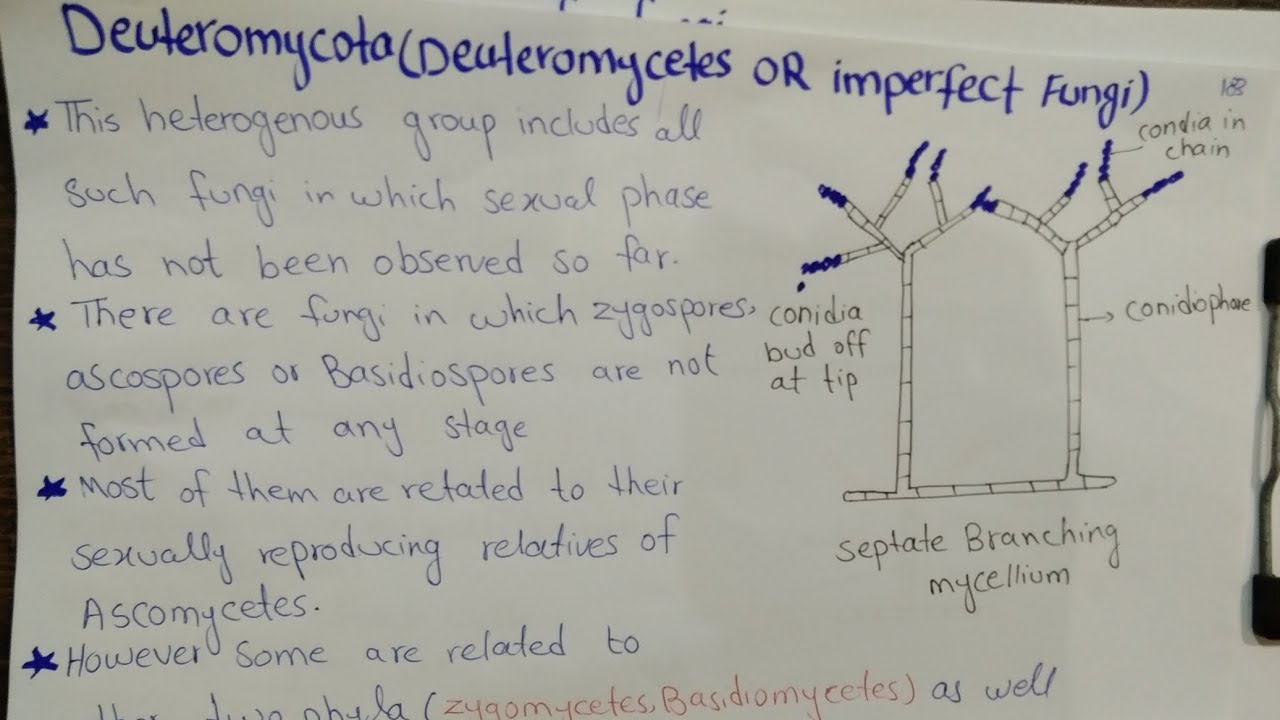 Deuteromycota(Deuteromycetes OR imperfect Fungi)
★ This heterogenous group includes all
such fungi in which sexual phase
has not been observed so far.
★ There are fungi in which zygospores,
ascospores or Basidiospores are not
formed at any stage
★ Most of them are retated to their
sexually reproducing relatives of
Ascomycetes.
★ However some are related to
phyla (zygomycetes, Basidiomycetes) as well
condia in
chain
conidia
bud off
at tip
conidiophore
septate Branching
mycellium